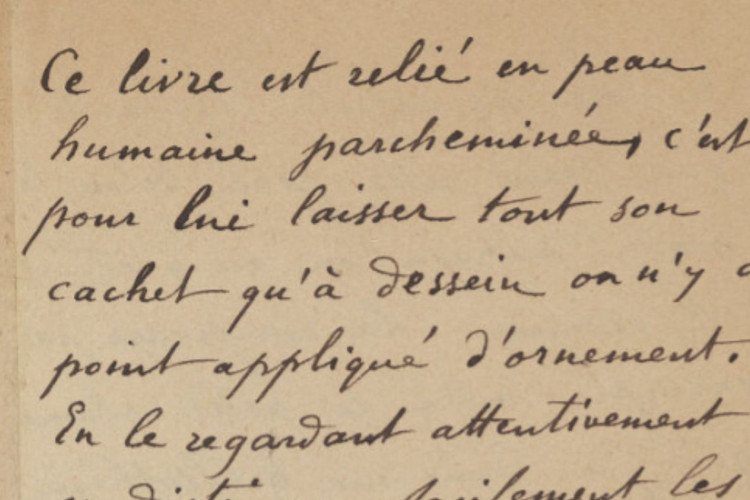 Ce livre est relié en peau
humaine parcheminée, c'est
pour lui laisser tout son
cachet qu'à dessein on n'y a
point appliqué d'ornement.
En le regardant attentivement
facilement les